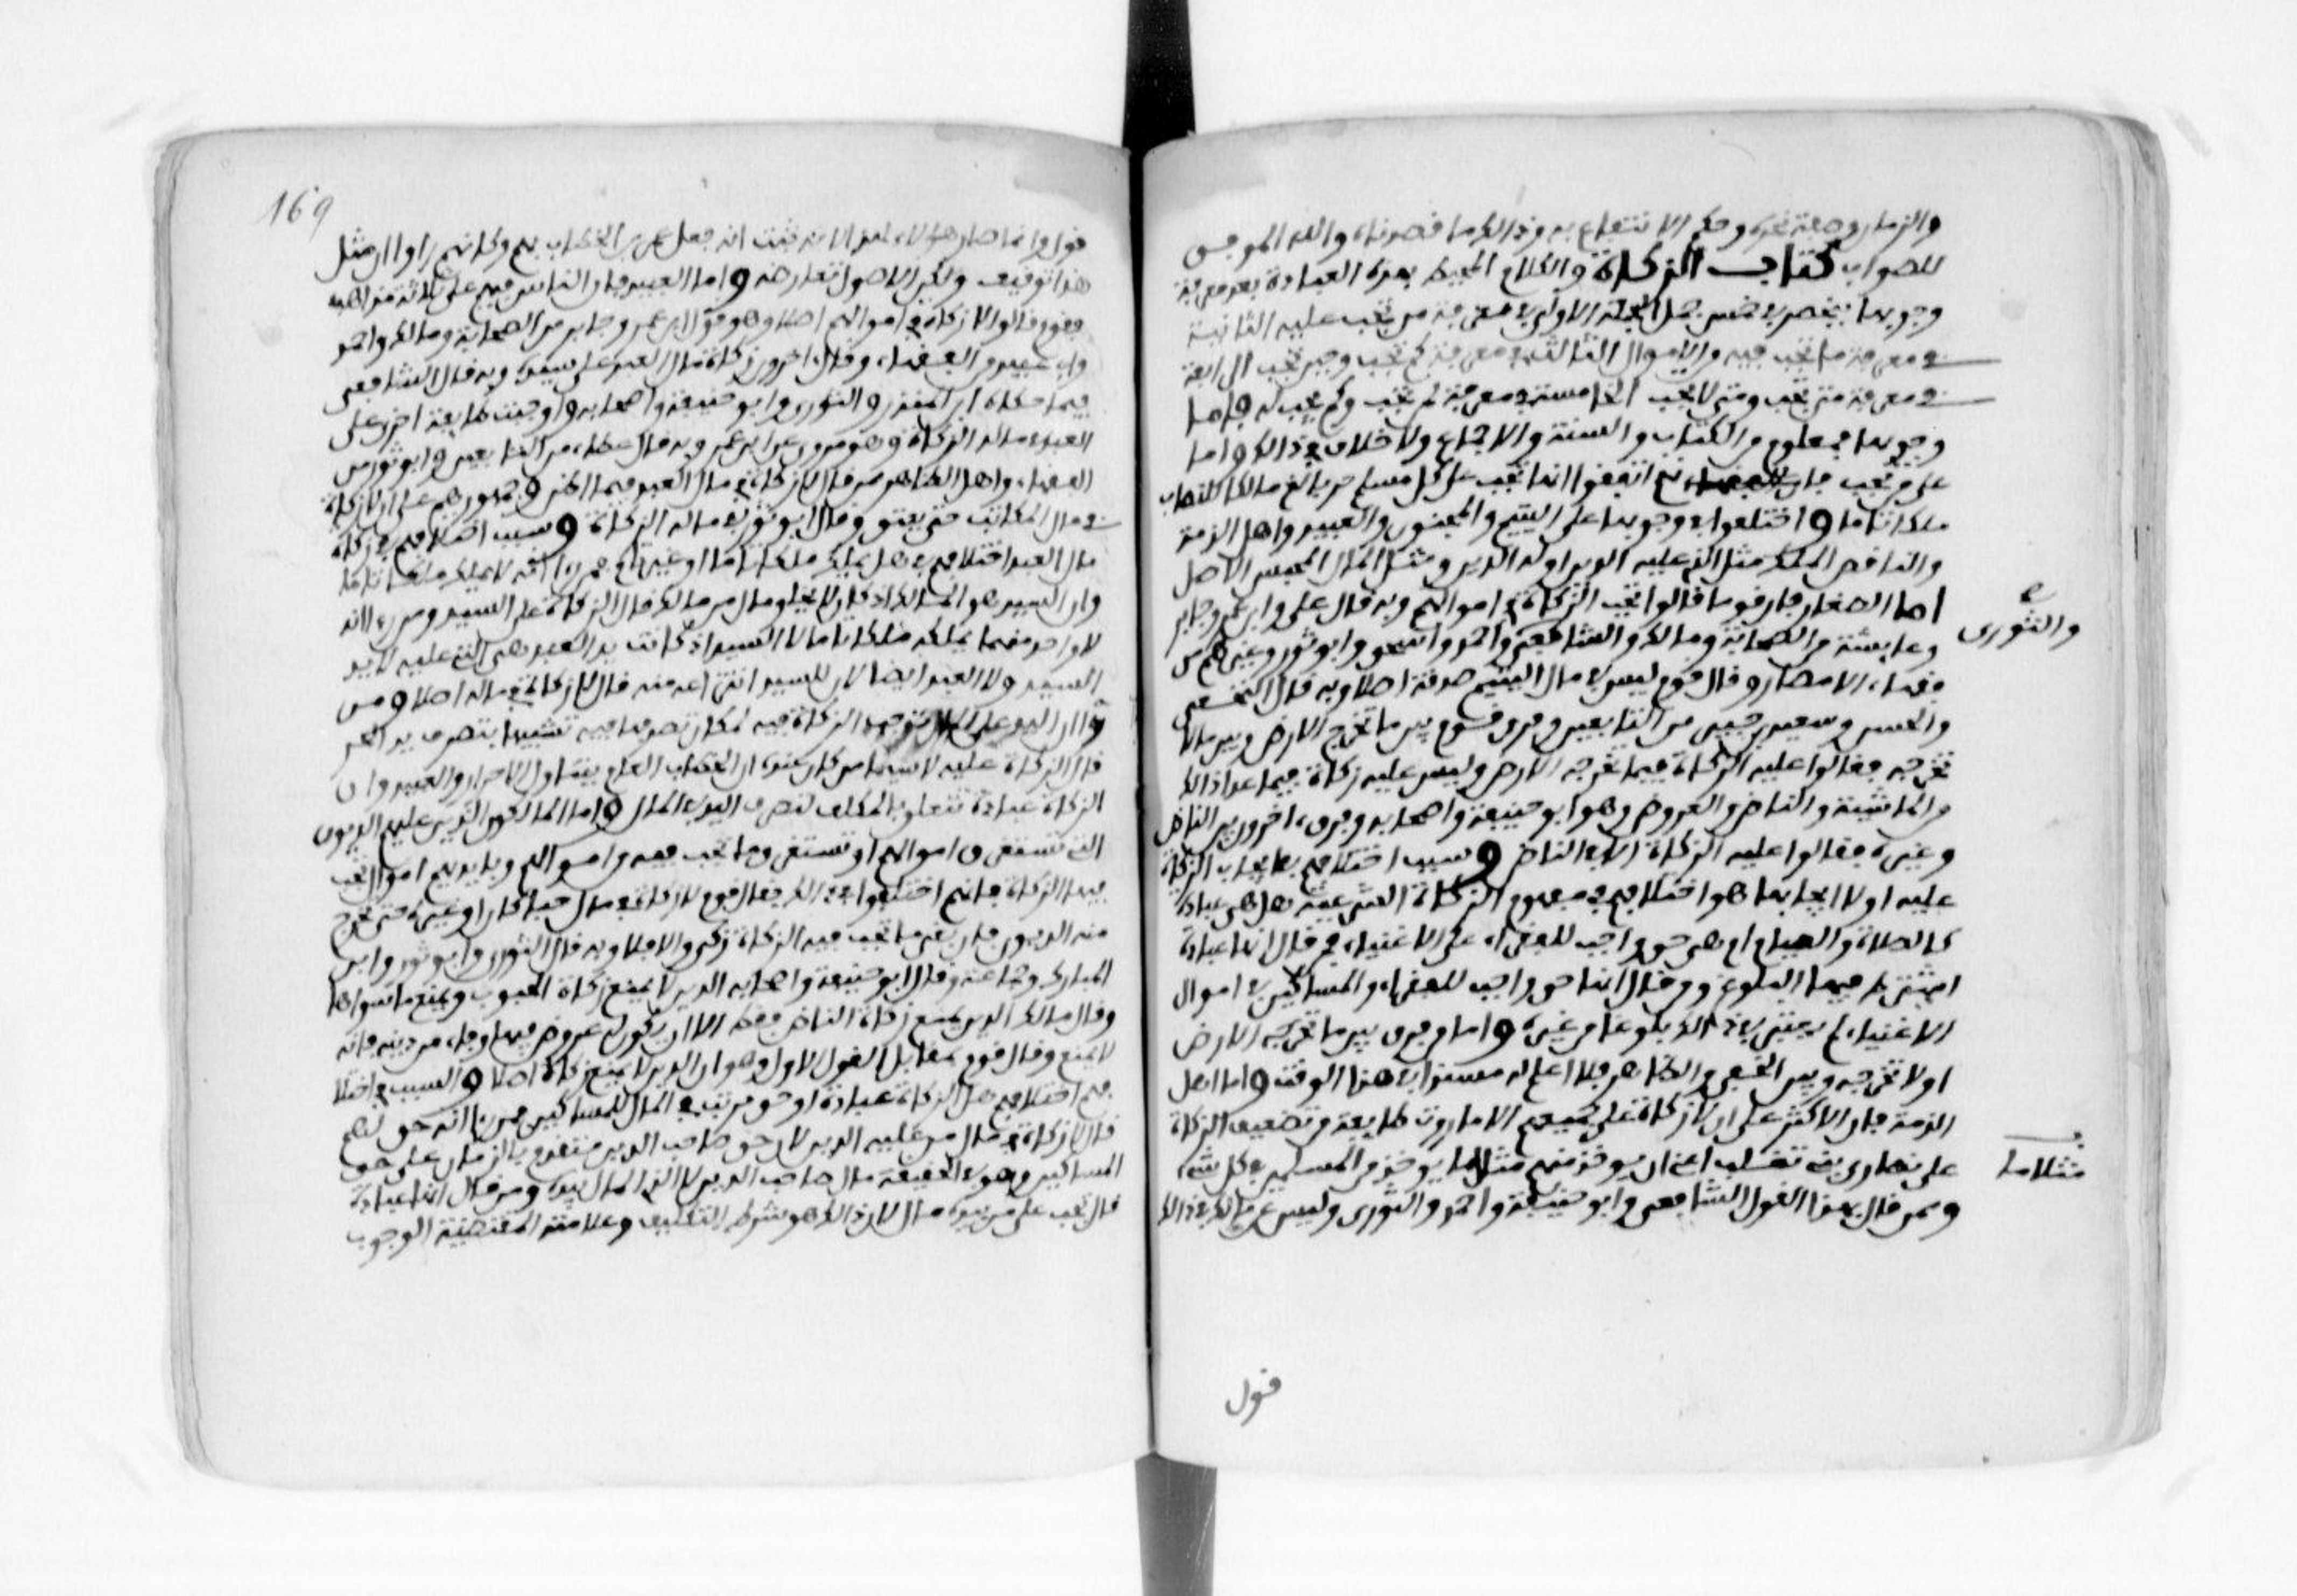 والزمان وصفة نحره وحكم الانتفاع به وذالك ما قصدناه والله الموفق
للصواب كتاب الزكاة والكلام المحيط بهذه العبادة بعد معرفة
وجوبها ينحصر في خمس جمل الجملة الاولى في معرفة من تجب عليه الثانية
في معرفة ما تجب فيه من الاموال الثالثة في معرفة كم تجب ومن كم تجب الرابعة
في معرفة متى تجب ومتى لا تجب الخامسة في معرفة لمن تجب وكم يجب له فاما
وجوبها فمعلوم من الكتاب والسنة والاجماع ولا خلاف في ذالك واما
على من تجب فان انهم اتفقوا انها تجب على كل مسلم حر بالغ مالك للنصاب
ملكا تاما واختلفوا في وجوبها على اليتيم والمجنون والعبيد واهل الذمة
والناقص الملك مثل الذي عليه الدين او له الدين ومثل المال المحبس الاصل
اما الصغار فان قوما قالوا تجب الزكاة في اموالهم وبه قال علي وابن عمر وجابر
وعايشة من الصحابة ومالك والشافعي واحمد واسحق وابو ثور وغيرهم من
والثورى
فقهاء الامصار وقال قوم ليس في مال اليتيم صدقة اصلا وبه قال النخعي
والحسن وسعيد بن جبير من التابعين وفرق قوم بين ما تخرج الارض وبين ما لا
تخرجه فقالوا عليه الزكاة فيما تخرجه الارض وليس عليه زكاة فيما عدا ذالك
من الماشية والناض والعروض وهو ابو حنيفة واصحابه وفرق اخرون بين الناض
وغيره فقالوا عليه الزكاة الا في الناض وسبب اختلافهم في ايجاب الزكاة
عليه او لا ايجابها هو اختلافهم في مفهوم الزكاة الشرعية هل هي عبادة
كالصلاة والصيام ام هي حق واجب للفقراء على الاغنياء فمن قال انها عبادة
اشترط فيها البلوغ ومن قال انها حق واجب للفقراء والمساكين في اموال
الاغنياء لم يعتبر في ذالك بلوغا من غيره واما من فرق بين ما تخرجه الارض
او لا تخرجه وبين الخفي والظاهر فلا اعلم له مستندا في هذا الوقت واما اهل
الذمة فان الاكثر على ان لا زكاة على جميعهم الا ما روت طايفة من تضعيف الزكاة
على نصارى بني تغلب اعني ان يوخذ منهم مثلا ما يوخذ من المسلمين في كل شيء
مثلا ما
وممن قال بهذا القول الشافعي وابو حنيفة واحمد والثورى وليس عن مالك في ذالك
قول
169
قول وانما صار هؤلاء لهذا لانه ثبت انه فعل عمر بن الخطاب بهم وكانهم راوا ان مثل
هذا توقيف ولكن الاصول تعارضه واما العبيد فان الناس فيهم على ثلاثة مذاهب
فقوم قالوا لا زكاة في اموالهم اصلا وهو قول ابن عمر وجابر من الصحابة ومالك واحمد
وابي عبيد من الفقهاء وقال اخرون زكاة مال العبد على سيده وبه قال الشافعي
فيما حكاه ابن المنذر والثوري وابو حنيفة واصحابه واوجبت طايفة اخرى على
العبد في ماله الزكاة وهو مروي عن ابن عمر وبه قال عطاء من التابعين وابو ثور من
الفقهاء واهل الظاهر من قال لا زكاة في مال العبد فيما اظن وجمهورهم على ان لا زكاة
في مال المكاتب حتى يعتق وقال ابو ثور في ماله الزكاة وسبب اختلافهم في زكاة
مال العبد اختلافهم في هل يملك ملكا تاما او غير تام فمن راى انه لا يملك ملكا تاما
وان السيد هو المالك اذ كان لا يخلو مال من مالك قال الزكاة على السيد ومن راى انه
لا واحد منهما يملكه ملكا تاما لا السيد اذ كانت يد العبد هي التي عليه لا يد
السيد ولا العبد ايضا لان للسيد انتزاعه منه قال لا زكاة في ماله اصلا ومن
راى ان اليد على المال توجب الزكاة فيه لمكان تصرفها فيه تشبيها بتصرف يد الحر
قال الزكاة عليه لا سيما من كان عنده ان الخطاب العام يتناول الاحرار والعبيد وان
الزكاة عبادة تتعلق بالمكلف لتصرف اليد في المال واما المالكون الذين عليهم الديون
التي تستغرق اموالهم او تستغرق ما تجب فيه من اموالهم وبايديهم اموال تجب
فيها الزكاة فانهم اختلفوا في ذالك فقال قوم لا زكاة في مال حبا كان او غيره حتى تخرج
منه الديون فان بقي ما تجب فيه الزكاة زكي والا فلا وبه قال الثوري وابو ثور وابن
المبارك وجماعة وقال ابو حنيفة واصحابه الدين لا يمنع زكاة الحبوب ويمنع ما سواها
وقال مالك الدين يمنع زكاة الناض فقط الا ان يكون له عروض فيها وفاء من دينه فانه
لا يمنع وقال قوم بمقابل القول الاول وهو ان الدين لا يمنع زكاة اصلا والسبب في اختلا
فهم اختلافهم هل الزكاة عبادة او حق مرتب في المال للمساكين فمن راى انه حق لهم
قال لا زكاة في مال من عليه الدين لان حق صاحب الدين متقدم بالزمان على حق
المساكين وهو في الحقيقة مال صاحب الدين لا الذي المال بيده ومن قال انها عبادة
قال تجب على من بيده مال لان ذالك هو شرط التكليف وعلامته المقتضية الوجوب